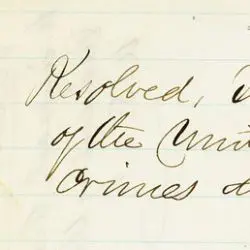 Resolved,
of the Uni
crimes